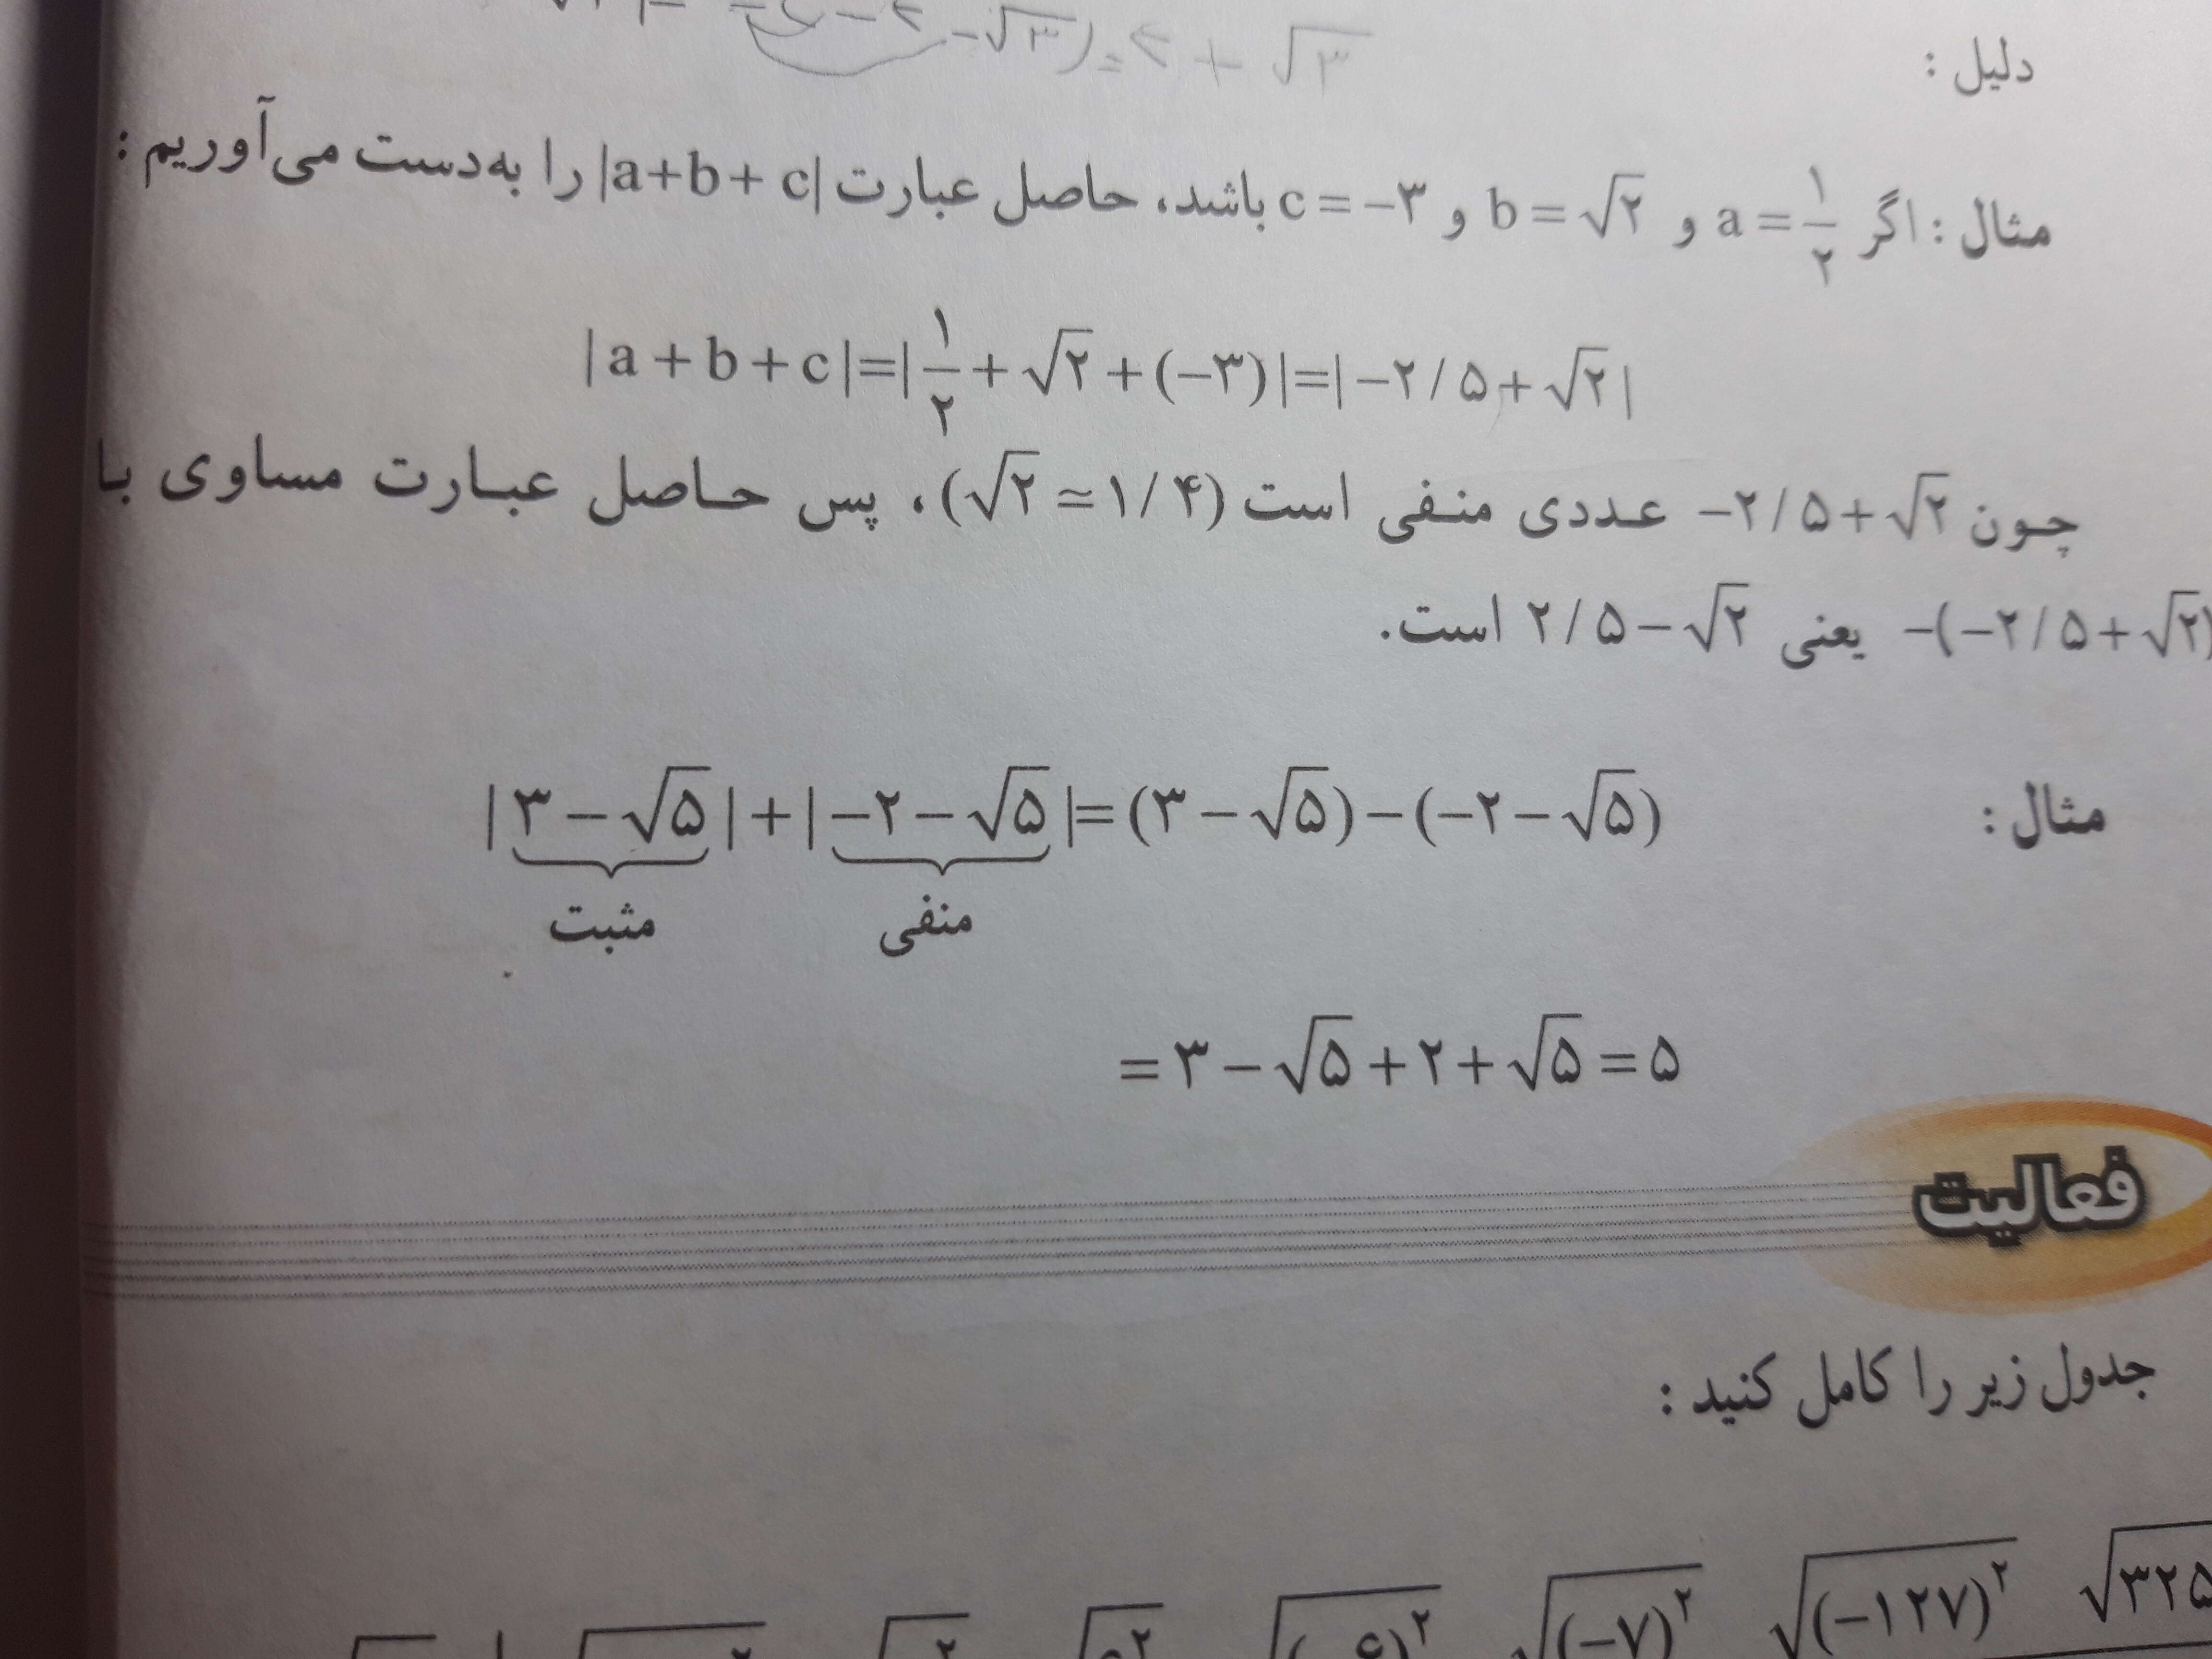 -√۳) = ۲ + √۳
دلیل :
مثال : اگر a = ۱/۲ و b = √۲ و c = −۳ باشد، حاصل عبارت |a+b+c| را به‌دست می‌آوریم :
|a+b+c|=|۱/۲+√۲+(−۳)|=|−۲/۵+√۲|
چون −۲/۵+√۲ عددی منفی است (√۲ ≃ ۱/۴)، پس حاصل عبارت مساوی با
−(−۲/۵+√۲) یعنی ۲/۵−√۲ است.
مثال : |۳−√۵|+|−۲−√۵|=(۳−√۵)−(−۲−√۵)
مثبت منفی
=۳−√۵+۲+√۵=۵
فعالیت
جدول زیر را کامل کنید :
√(−۷)^۲ √(−۱۲۷)^۲ √۳۲۵